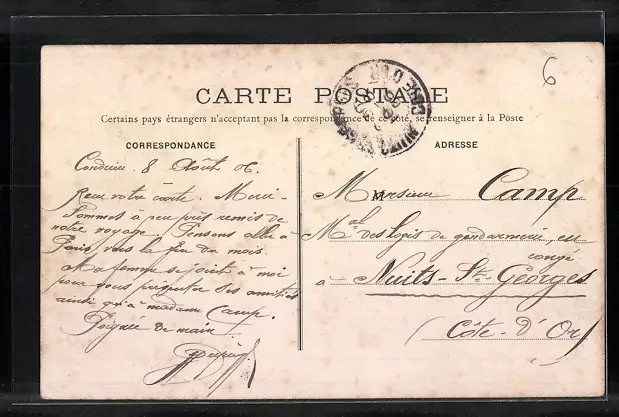 6
CARTE POSTALE
Certains pays étrangers n'acceptant pas la correspondance de ce côté, se renseigner à la Poste
CORRESPONDANCE
Condrieu. 8 Août 06.
Reçu votre carte. Merci.
Sommes à peu près remis de
notre voyage. Pensons aller à
Paris vers la fin du mois.
Ma femme se joint à moi
pour vous présenter ses amitiés
ainsi qu'à madame Camp.
Poignée de main.
ADRESSE
M Monsieur Camp
Mal des logis de gendarmerie, en
congé
à Nuits-St-Georges
(Côte-d'Or)